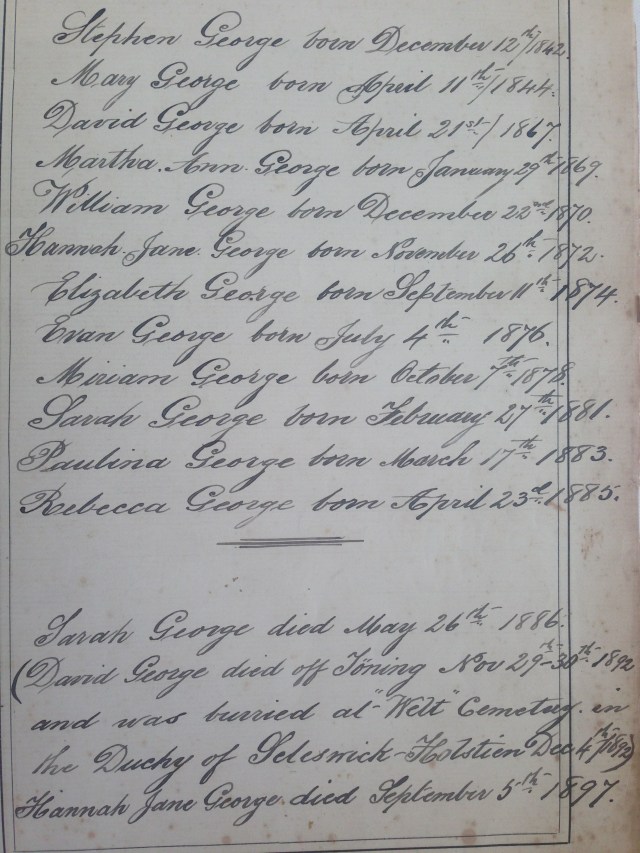 Stephen George born December 12th/1842.
Mary George born April 11th/1844.
David George born April 21st/1867.
Martha Ann George born January 29th 1869.
William George born December 22nd 1870.
Hannah Jane George born November 26th 1872.
Elizabeth George born September 11th 1874.
Evan George born July 4th 1876.
Miriam George born October 7th 1878.
Sarah George born February 27th 1881.
Paulina George born March 17th 1883.
Rebecca George born April 23rd 1885.
Sarah George died May 26th 1886.
(David George died off Töning Nov 29th-30th 1892
and was burried at "Welt" Cemetery in
the Duchy of Seleswick-Holstien Dec 4th/1892)
Hannah Jane George died September 5th 1897.